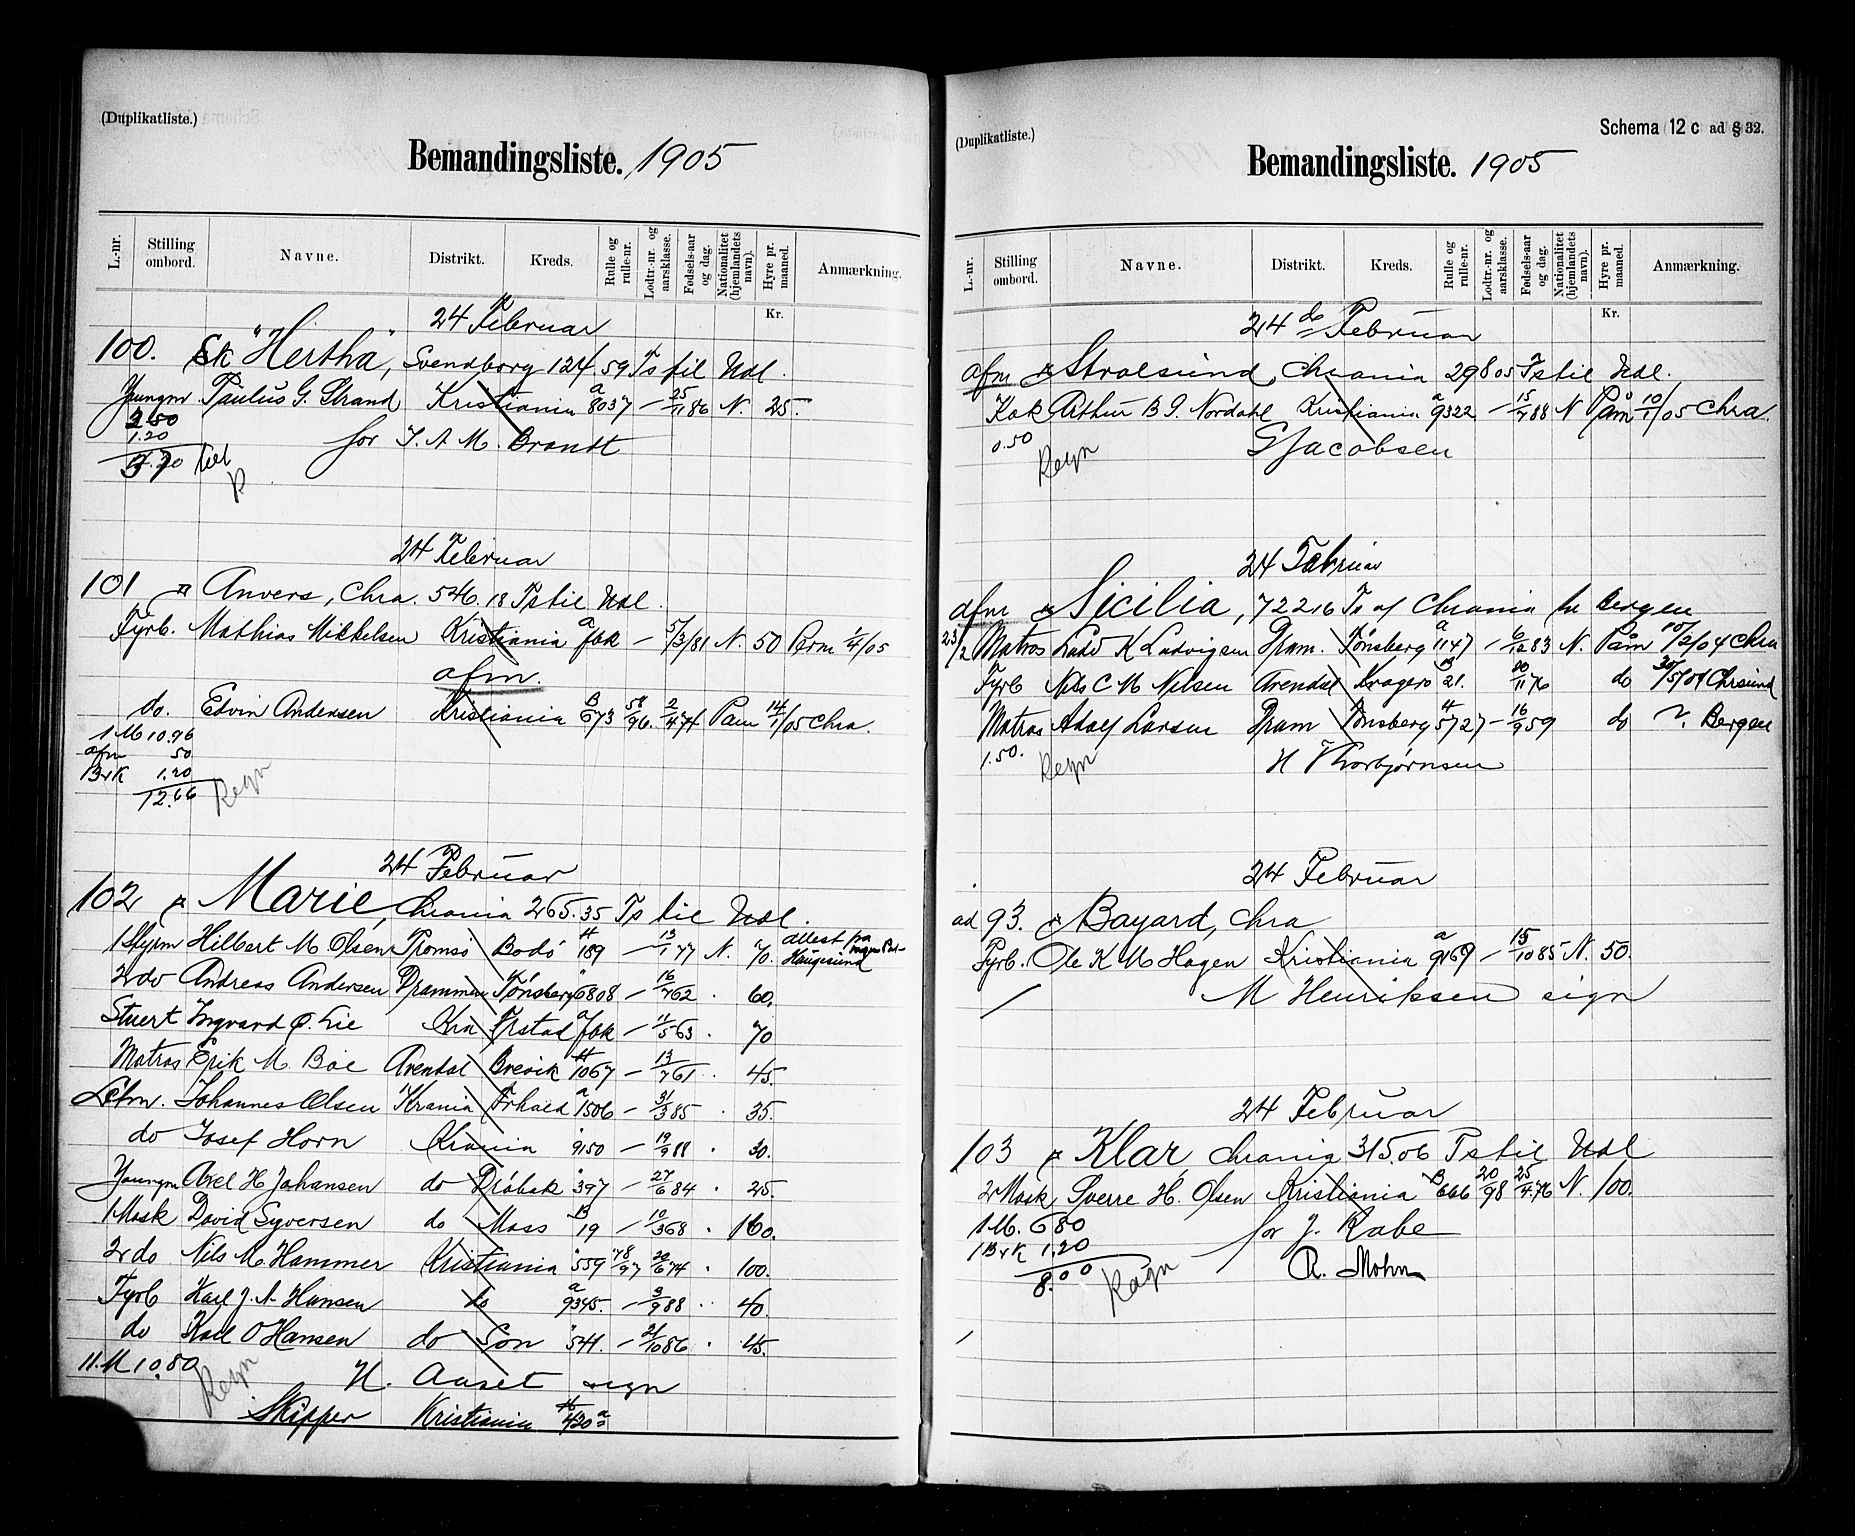 (Duplikatliste.)
Bemandingsliste. 1905
L.-nr. Stilling ombord. Navne. Distrikt. Kreds. Rulle og rulle-nr. Lodtr.-nr. og aarsklasse. Fødsels-aar og dag. Nationalitet (hjemlandets navn). Hyre pr. maaned. Anmærkning.
Kr.
24 Februar
100. Sk "Hertha", Svendborg 124 59 Ts til Udl.
Jungm Paulus G. Strand Kristiania a 8037 — 25/1186 N. 25.
2 50
1.20
for J. A. M. Brandt
24 Februar
101 Anvers, Chra. 546.18 Ts til Udl.
Fyrb. Mathias Mikkelsen Kristiania a fbk — 5/3/81 N. 50 Brm 1/4/05
afm.
do. Edvin Andersen Kristiania B 673 58/96. 2/4 74 Paam 14/1/05 Chra.
1 M 10.96
afm 50
B&K 1.20
12.66 Regn
24 Februar
102 Marie, Chrania 265.35 Ts til Udl.
1 Styrm Hilbert M Olsen Tromsø Bodö H 189 — 13/1 77 N. 70. Haugesund
2 do Andreas Andersen Drammen Tönsberg 6808 — 16/7 62 . 60.
Stuert Ingvard O. Lie Kra a fbk — 11/5 63 . 70
Matros Erik M. Boe Arendal Brevik H 1067 — 13/7 61 . 45.
Letm. Johannes Olsen Krania Frhald a 1506 — 31/3 85 . 35.
do Josef Horn Krania " 9150 — 19/9 88 . 30.
Youngm Axel H Johansen do Dröbak " 397 — 27/6 84 . 25.
1 Mask David Syversen do Moss B 19 — 10/3 68 . 160.
2 do Nils M. Hammer Kristiania " 559 78/97 20/6 74 . 100.
Fyrb Karl J. A. Hansen do a 9345. — 3/9 88 . 40.
do Karl O Hansen do Son " 541. — 21/10 86 . 45.
11. M 10.80 Regn
H. Aaset sign
Skipper Kristiania 430
(Duplikatliste.)
Schema 12 c ad § 32.
Bemandingsliste. 1905
L.-nr. Stilling ombord. Navne. Distrikt. Kreds. Rulle og rulle-nr. Lodtr.-nr. og aarsklasse. Fødsels-aar og dag. Nationalitet (hjemlandets navn). Hyre pr. maaned. Anmærkning.
Kr.
24 de Februar
afm Stralsund, Chrania 298 05 Ts til Udl.
Kok Arthur B J. Nordahl Kristiania a 9322 — 15/7 88 N Påm 10/1/05 Chra.
0.50 Regn
G Jacobsen
24 Februar
afm Sicilia, 722 16 Ts af Chrania for Bergen
23/2 Matros Ludv K Ludvigsen Dram. Tønsberg a 1147 — 6/12 83 N. Påm 15/2/04 Chra
Fyrb Nils C M Nilsen Arendal Kragerø B 21. 20/11 76 do 30/5/04 Chrsund
Matros Adolf Larsen Dram Tønsberg H 5727 — 16/9 59 do Bergen
1.50. Regn
H Thorbjørnsen
24 Februar
ad 93. Bayard, Chra
Fyrb. Ole K M Hagen Kristiania a 9169 — 15/10 85 N. 50.
M Henriksen sign
24 Februar
103 Klar, Chrania 315.06 Ts til Udl
2 Mask Sverre H. Olsen Kristiania B 666 20/98 25/4.76 N. 100.
1 M. 6 80
1 B&K 1.20
8.00 Regn
for J. Rabe
R. Mohn